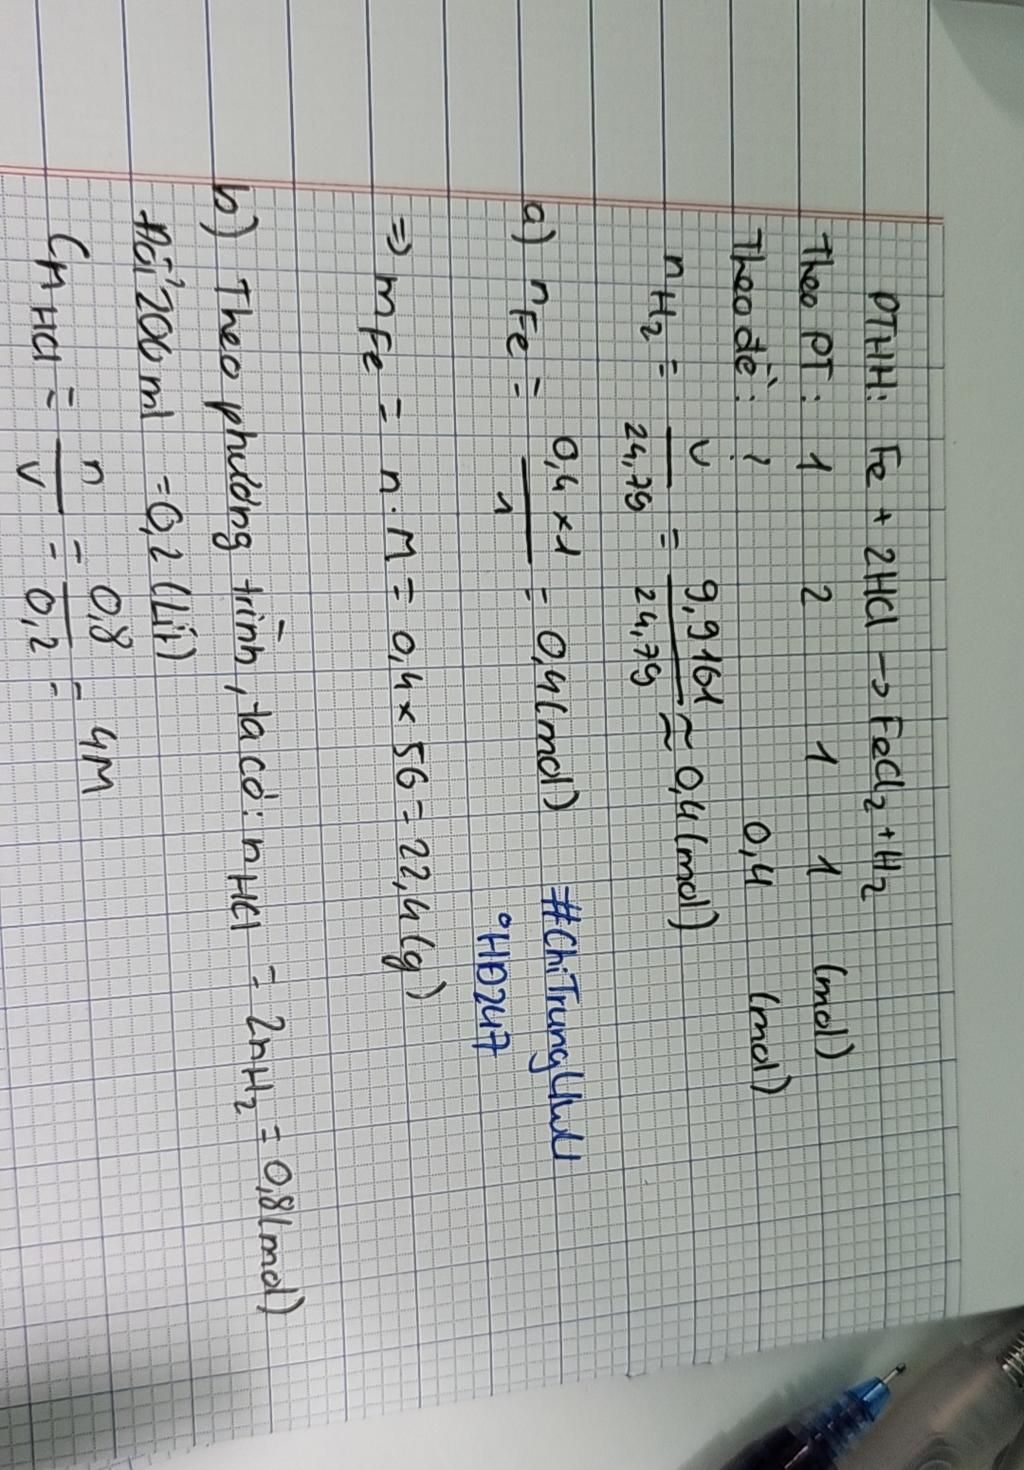 PTHH: Fe + 2HCl → FeCl₂ + H₂
Theo PT: 1 2 1 1 (mol)
Theo đề: ? 0,4 (mol)
nH₂ = V/24,79 = 9,9161/24,79 ≈ 0,4 (mol)
a) nFe = 0,4 × 1/1 = 0,4 (mol)
#ChiTrungUwU
°HĐ247
=> mFe = n.M = 0,4 × 56 = 22,4 (g)
b) Theo phương trình, ta có: nHCl = 2nH₂ = 0,8 (mol)
Đổi 200 ml = 0,2 (Lít)
CM HCl = n/V = 0,8/0,2 = 4M